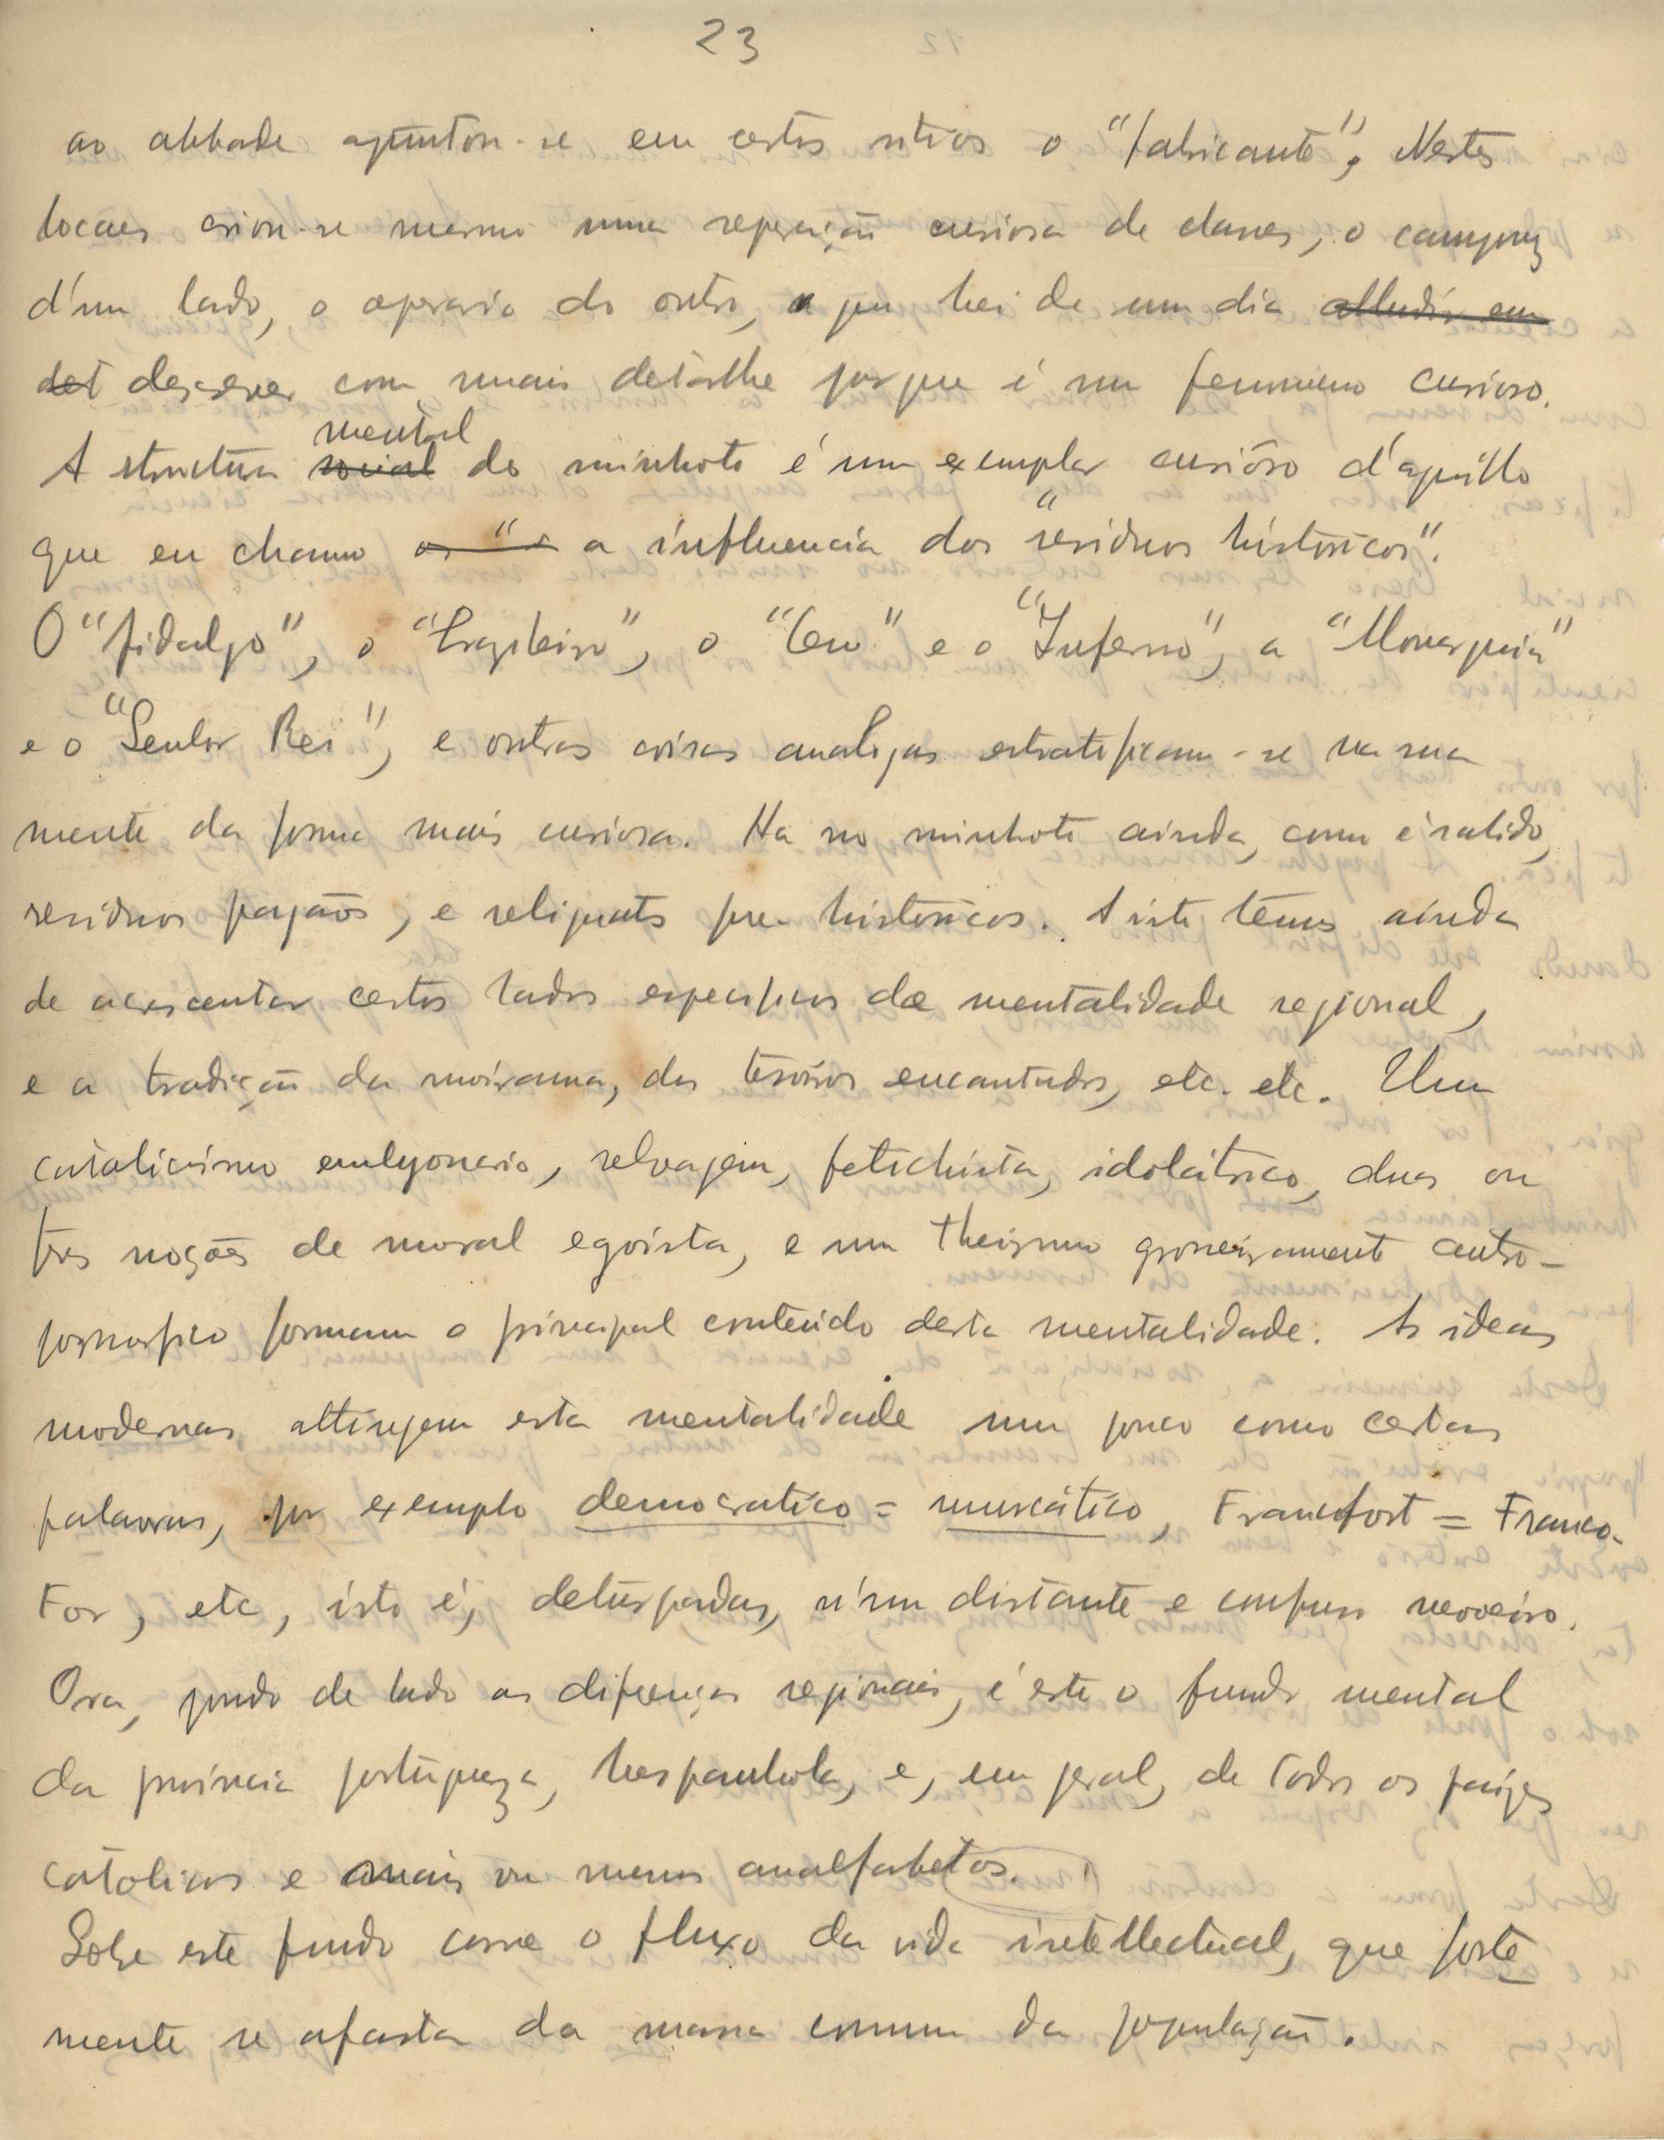 23
ao abbade ajuntou-se em certos sitios o "fabricante". Nestes
locaes criou-se mesmo uma separação curiosa de classes, o camponez
d'um lado, o operario do outro, a que hei de um dia alludir em
det descrever com mais detalhe porque é um fenomeno curioso.
mental
A structura social do minhoto é um exemplar curioso d'aquillo
que eu chamo os " a influencia dos "residuos historicos".
O "fidalgo", o "brazileiro", o "Ceu" e o "Inferno", a "Monarquia"
e o "Senhor Rei", e outras coisas analogas estratificam-se na sua
mente da forma mais curiosa. Ha no minhoto ainda, como é sabido,
residuos pagãos, e reliquats pre-historicos. A isto temos ainda
de acrescentar certos lados especificos da mentalidade regional,
e a tradição da moirama, dos tesoiros encantados, etc. etc. Um
catolicismo embryonario, selvagem, fetichista, idolátrico, duas ou
tres noções de moral egoista, e um theismo grosseiramente antro-
pomorfico formam o principal conteúdo desta mentalidade. As ideas
modernas attingem esta mentalidade um pouco como certas
palavras, por exemplo democratico = muscático, Francfort = Franco-
For, etc, isto é, deturpadas, n'um distante e confuso nevoeiro.
Ora, pondo de lado as diferenças regionais, é este o fundo mental
da provincia portugueza, hespanhola, e, em geral, de todos os paizes
catolicos e mais ou menos analfabetos.
Sobre este fundo corre o fluxo da vida intellectual, que forte
mente se afasta da massa comum da população.